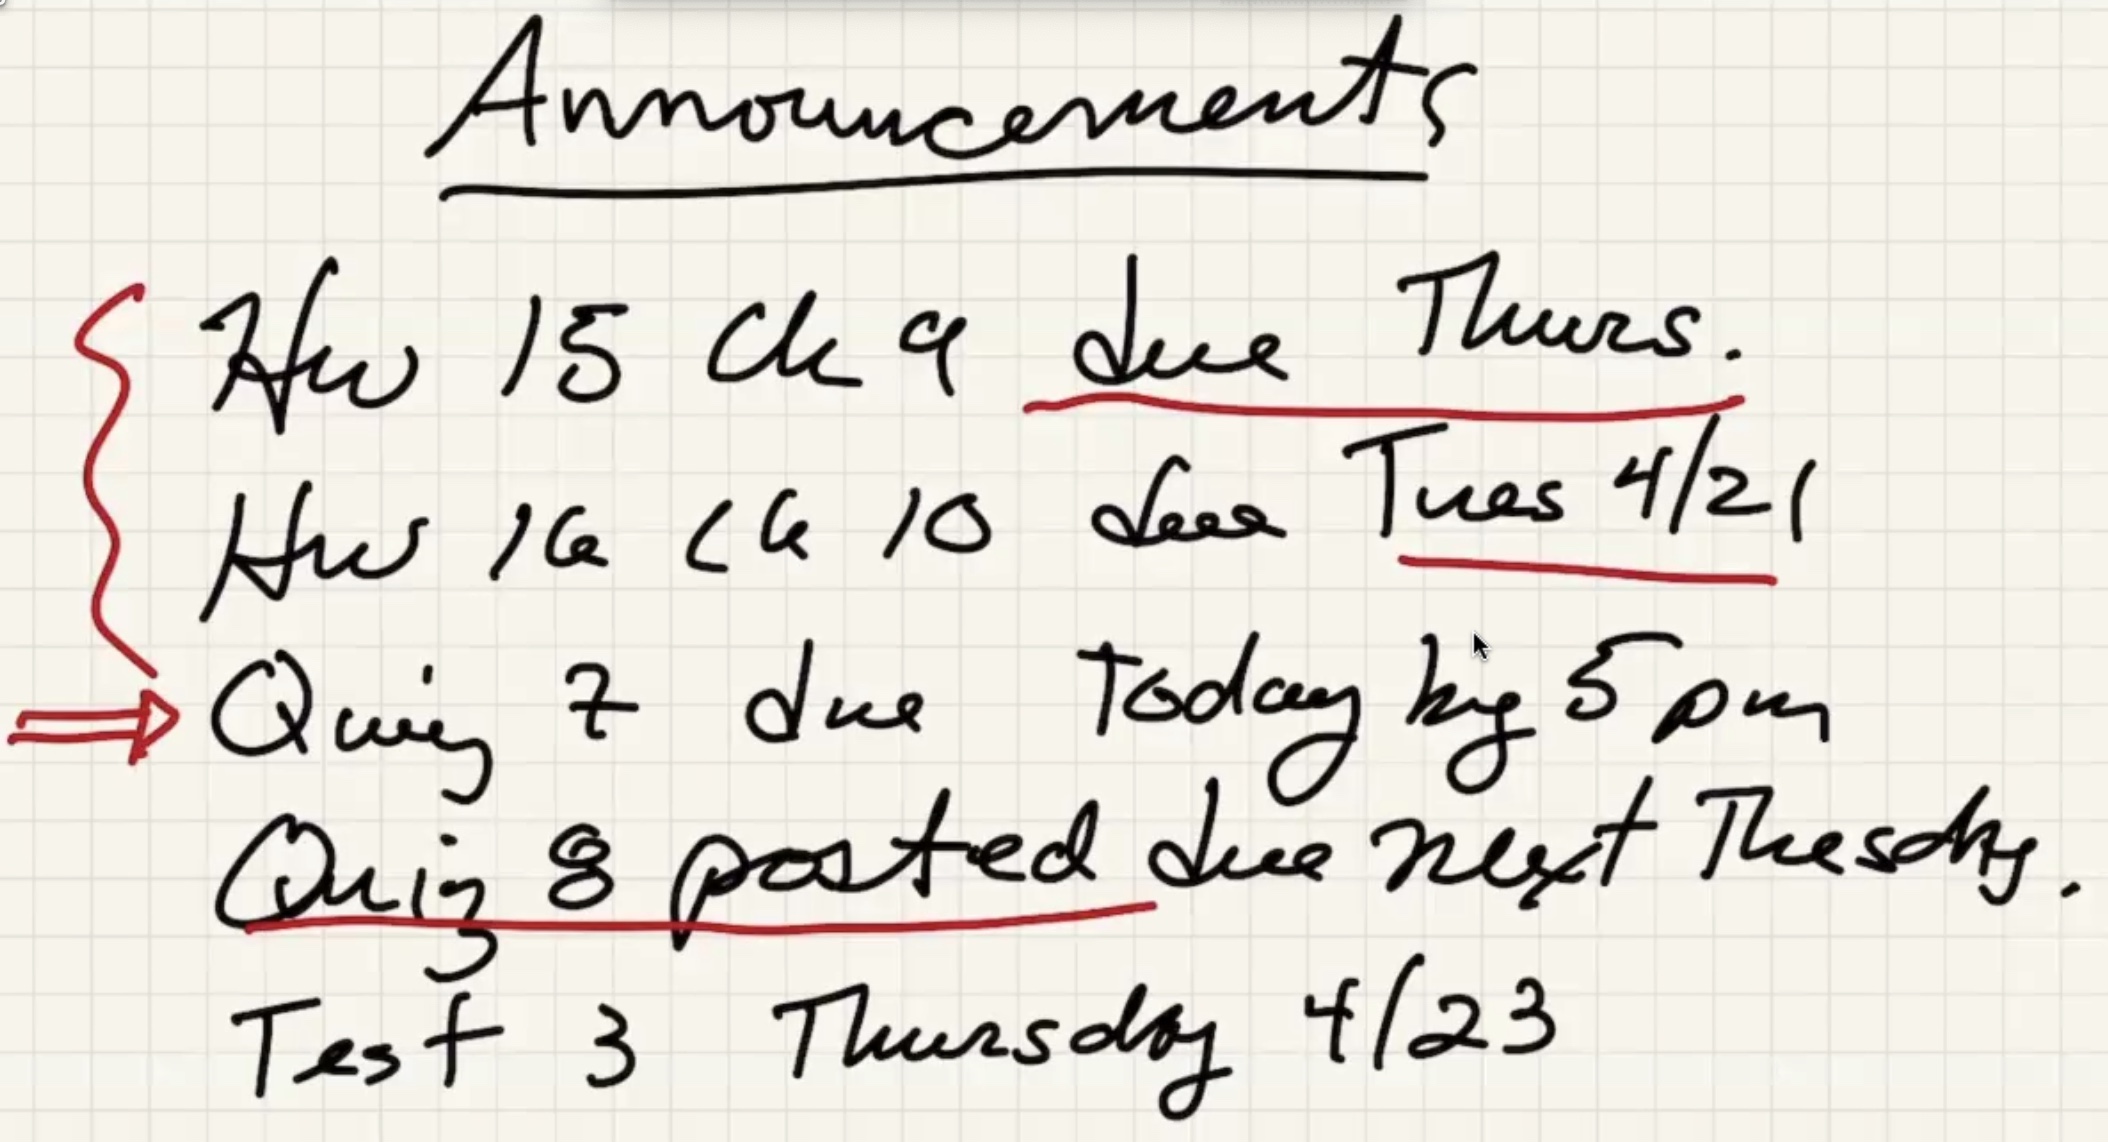 Announcements
Hw 15 Ch 9 due Thurs.
Hw 16 Ch 10 due Tues 4/21
Quiz 7 due Today by 5 pm
Quiz 8 posted due next Thesday.
Test 3 Thursday 4/23